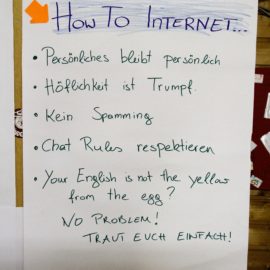 HOW TO INTERNET...
• Persönliches bleibt persönlich
• Höflichkeit ist Trumpf.
• Kein Spamming
• Chat Rules respektieren
• Your English is not the yellow
from the egg?
NO PROBLEM!
TRAUT EUCH EINFACH!